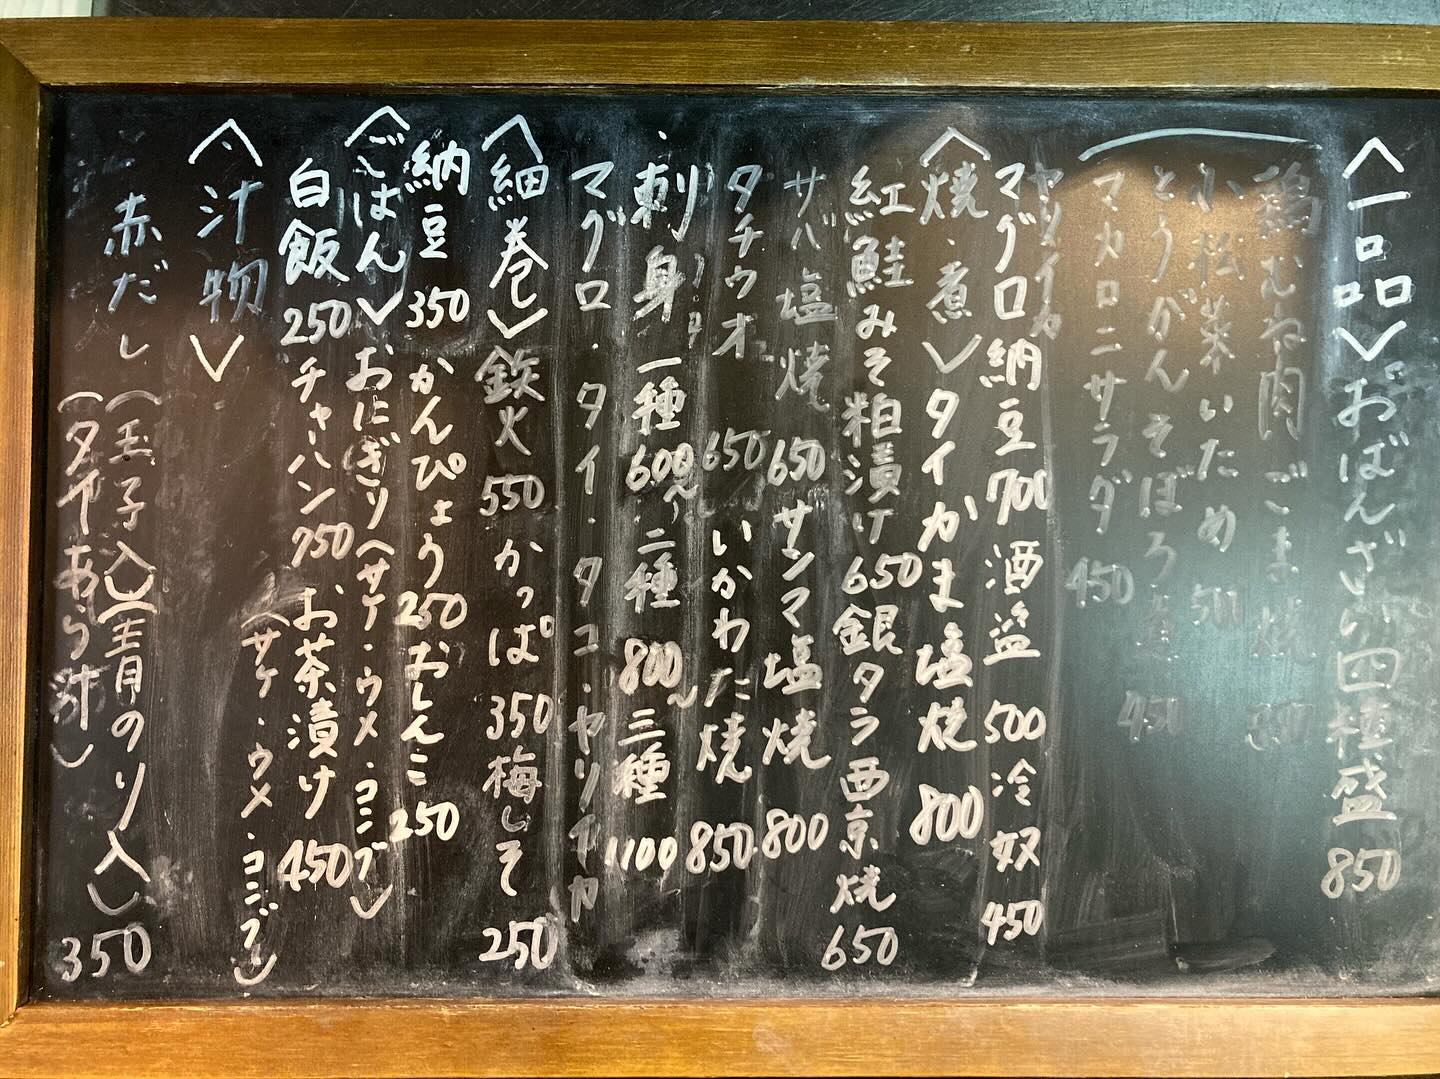 〈一品〉おばんざい四種盛 850
鶏むね肉ごま焼
小松菜いため
とうがんそぼろ 450
マカロニサラダ 450
ヤリイカ
マグロ納豆 700 酒盗 500 冷奴 450
〈焼・煮〉タイかま塩焼 800
紅鮭みそ粕漬け 650 銀タラ西京焼 650
サバ塩焼 650 サンマ塩焼 800
タチウオ 650 いかわた焼 850
刺身 一種 600〜 二種 800〜 三種 1100
マグロ・タイ・タコ・ヤリイカ
〈細巻〉鉄火 550 かっぱ 350 梅しそ 250
納豆 350 かんぴょう 250 おしんこ 250
〈ごはん〉おにぎり(サケ・ウメ・コンブ)
白飯 250 チャーハン 750 お茶漬け 450
(サケ・ウメ・コンブ)
〈汁物〉
赤だし (玉子入)(青のり入) 350
(タイあら汁)